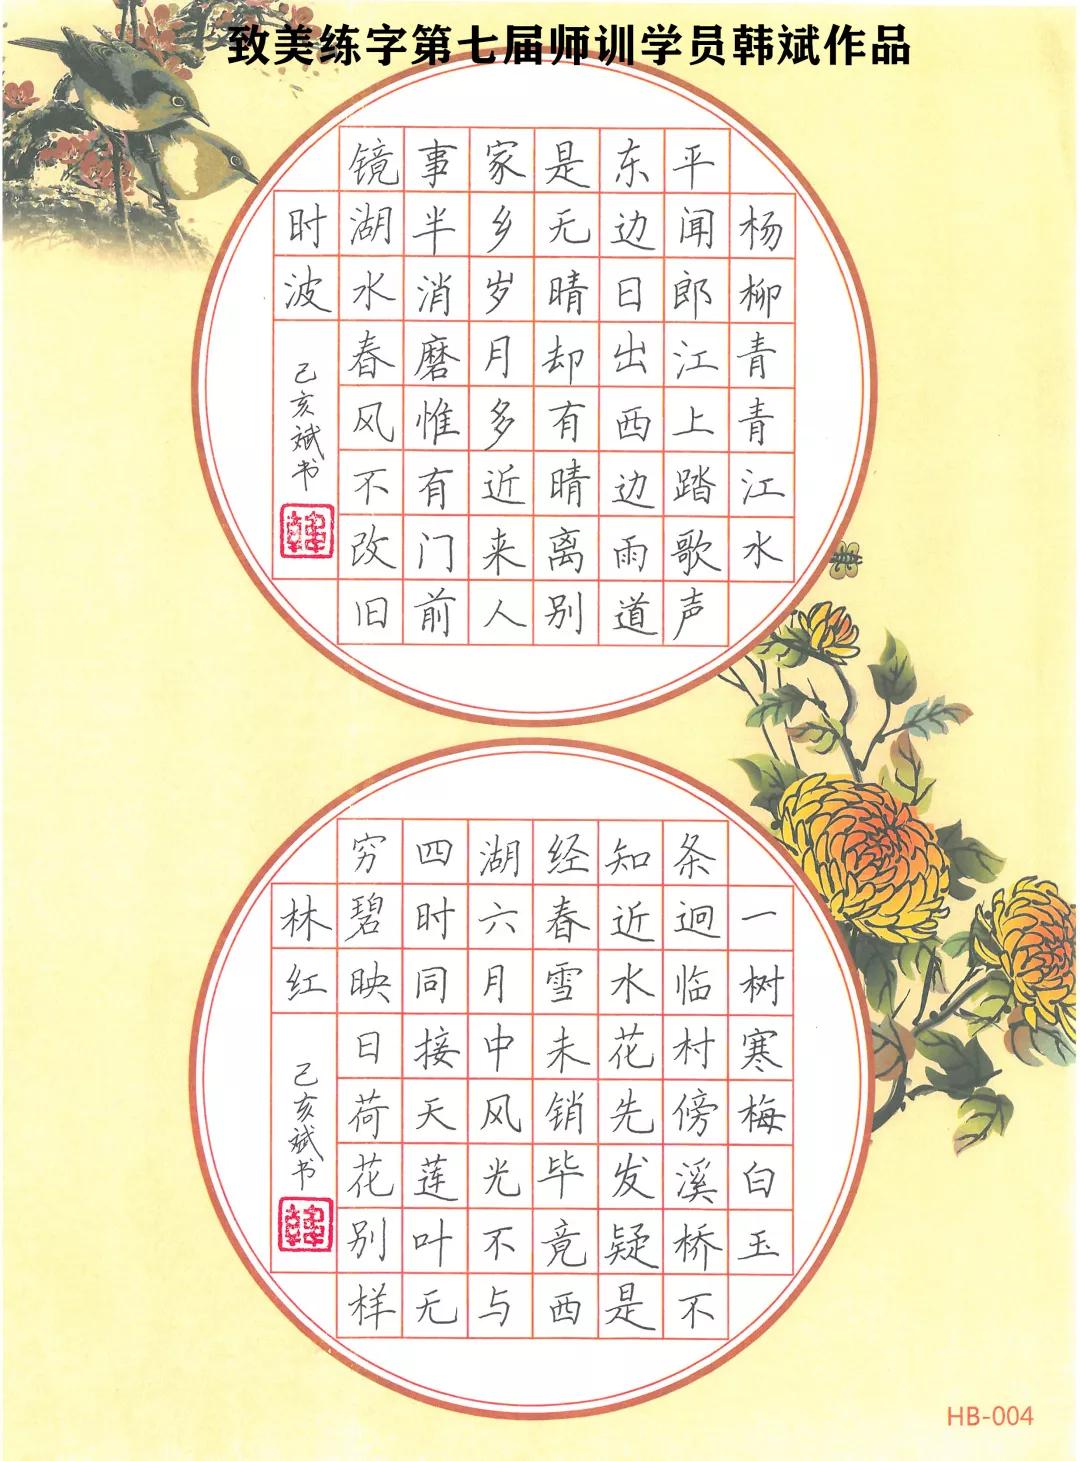 致美练字第七届师训学员韩斌作品
杨柳青青江水
平闻郎江上踏歌声
东边日出西边雨道
是无晴却有晴离别
家乡岁月多近来人
事半消磨惟有门前
镜湖水春风不改旧
时波
己亥斌书
韓
一树寒梅白玉
条迥临村傍溪桥不
知近水花先发疑是
经春雪未销毕竟西
湖六月中风光不与
四时同接天莲叶无
穷碧映日荷花别样
林红
己亥斌书
韓
HB-004